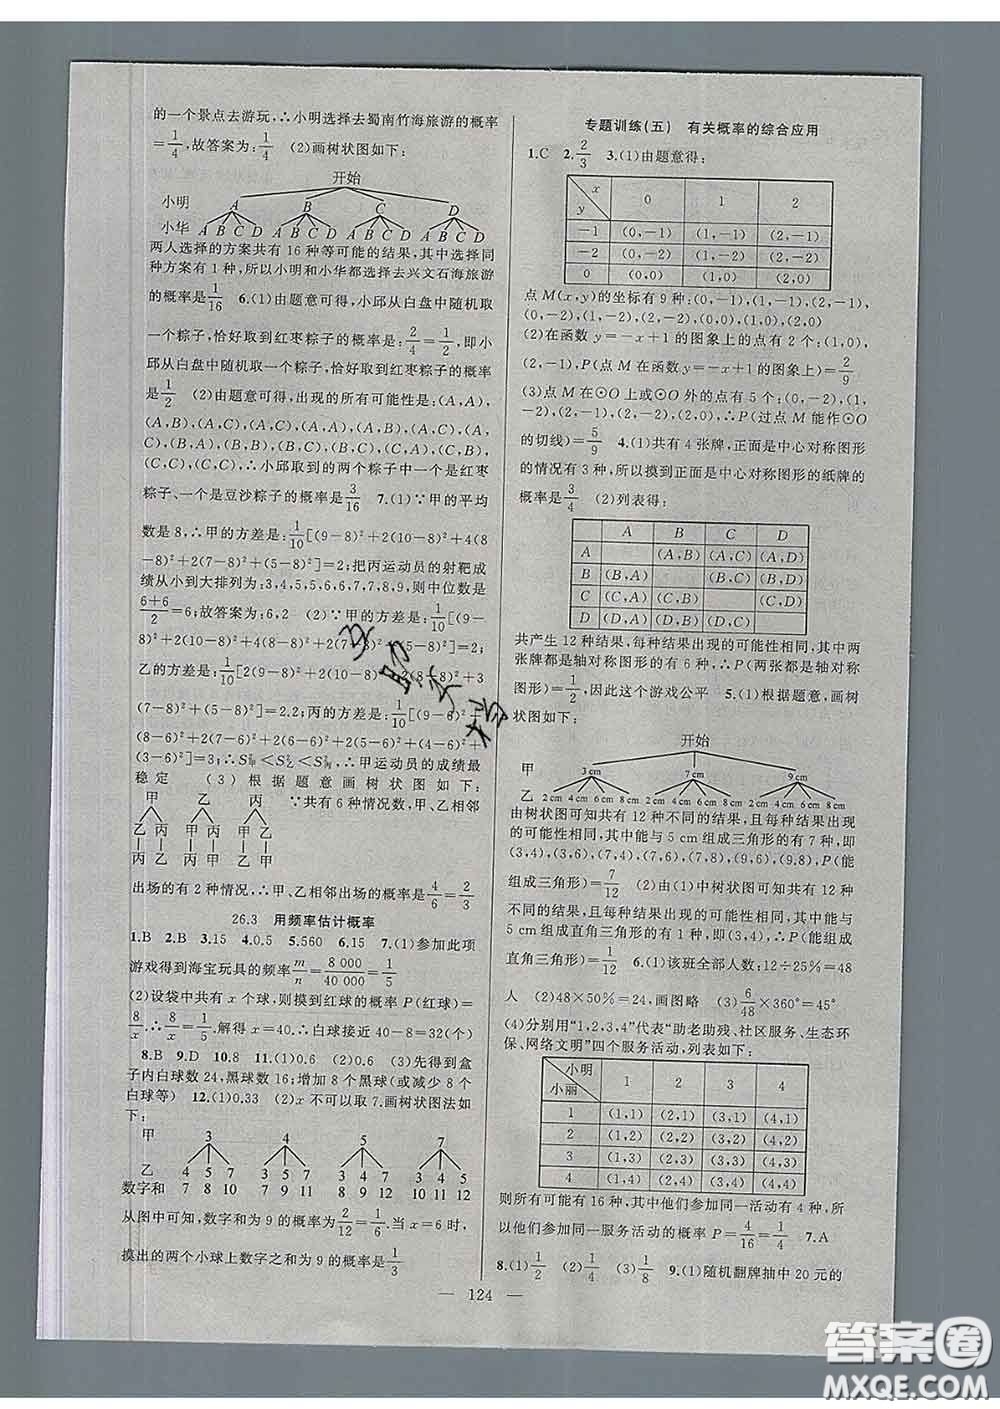 的一个景点去游玩,∴小明选择去蜀南竹海旅游的概率
1/4,故答案为:1/4 (2)画树状图如下:
开始
小明 A B C D
小华 A B C D A B C D A B C D A B C D
两人选择的方案共有 16 种等可能的结果,其中选择同
种方案有 1 种,所以小明和小华都选择去兴文石海旅游
的概率是1/16 6.(1)由题意可得,小邱从白盘中随机取
一个粽子,恰好取到红枣粽子的概率是:2/4=1/2,即小
邱从白盘中随机取一个粽子,恰好取到红枣粽子的概率
是1/2 (2)由题意可得,出现的所有可能性是:(A,A),
(A,B),(A,C),(A,C),(A,A),(A,B),(A,C),(A,
C),(B,A),(B,B),(B,C),(B,C),(C,A),(C,B),
(C,C),(C,C),∴小邱取到的两个粽子中一个是红枣
粽子、一个是豆沙粽子的概率是3/16 7.(1)∵甲的平均
数是 8,∴甲的方差是:1/10[(9−8)²+2(10−8)²+4(8
−8)²+2(7−8)²+(5−8)²]=2;把丙运动员的射靶成
绩从小到大排列为:3,4,5,5,6,6,7,7,8,9,则中位数是
(6+6)/2=6;故答案为:6,2 (2)∵甲的方差是:1/10[(9−
8)²+2(10−8)²+4(8−8)²+2(7−8)²+(5−8)²]=2;
乙的方差是:1/10[2(9−8)²+2(10−8)²+2(8−8)²+3
(7−8)²+(5−8)²]=2.2;丙的方差是:1/10[(9−6)²+
(8−6)²+2(7−6)²+2(6−6)²+2(5−6)²+(4−6)²+
(3−6)²]=3;∴S²甲<S²乙<S²丙,∴甲运动员的成绩最
稳定 (3)根据题意画树状图如下:
甲 乙 丙 ∵共有 6 种情况数,甲、乙相邻
乙 丙 甲 丙 甲 乙
丙 乙 丙 甲 乙 甲
出场的有 2 种情况,∴甲、乙相邻出场的概率是4/6=2/3
26.3 用频率估计概率
1.B 2.B 3.15 4.0.5 5.560 6.15 7.(1)参加此项
游戏得到海宝玩具的频率m/n=8 000/40 000=1/5
(2)设袋中共有 x 个球,则摸到红球的概率 P(红球)=
8/x.∴8/x=1/5.解得 x=40.∴白球接近 40−8=32(个)
8.B 9.D 10.8 11.(1)0.6 (2)0.6 (3)先得到盒
子内白球数 24,黑球数 16;增加 8 个黑球(或减少 8 个
白球等) 12.(1)0.33 (2)x 不可以取 7.画树状图法如
下:
甲 3 4 5 7
乙 4 5 7 3 5 7 3 4 7 3 4 5
数字和 7 8 10 7 9 11 8 9 12 10 11 12
从图中可知,数字和为 9 的概率为2/12=1/6.当 x=6 时,
摸出的两个小球上数字之和为 9 的概率是1/3
专题训练(五) 有关概率的综合应用
1.C 2.2/3 3.(1)由题意得:
x y 0 1 2
−1 (0,−1) (1,−1) (2,−1)
−2 (0,−2) (1,−2) (2,−2)
0 (0,0) (1,0) (2,0)
点 M(x,y)的坐标有 9 种:(0,−1),(1,−1),(2,−1),
(0,−2),(1,−2),(2,−2),(0,0),(1,0),(2,0)
(2)在函数 y=−x+1 的图象上的点有 2 个:(1,0),
(2,−1),P(点 M 在函数 y=−x+1 的图象上)=2/9
(3)点 M 在⊙O 上或⊙O 外的点有 5 个:(0,−2),(1,
−2),(2,−1),(2,−2),(2,0),∴P(过点 M 能作⊙O
的切线)=5/9 4.(1)共有 4 张牌,正面是中心对称图形
的情况有 3 种,所以摸到正面是中心对称图形的纸牌的
概率是3/4 (2)列表得:
A B C D
A (A,B) (A,C) (A,D)
B (B,A) (B,C) (B,D)
C (C,A) (C,B) (C,D)
D (D,A) (D,B) (D,C)
共产生 12 种结果,每种结果出现的可能性相同,其中两
张牌都是轴对称图形的有 6 种,∴P(两张都是轴对称
图形)=1/2,因此这个游戏公平 5.(1)根据题意,画树
状图如下:
开始
甲 3 cm 7 cm 9 cm
乙 2 cm 4 cm 6 cm 8 cm 2 cm 4 cm 6 cm 8 cm 2 cm 4 cm 6 cm 8 cm
由树状图可知共有 12 种不同的结果,且每种结果出现
的可能性相同,其中能与 5 cm 组成三角形的有 7 种,即
(3,4),(3,6),(7,4),(7,6),(7,8),(9,6),(9,8),P(能
组成三角形)=7/12 (2)由(1)中树状图可知共有 12 种
不同的结果,且每种结果出现的可能性相同,其中能与
5 cm 组成直角三角形的有 1 种,即(3,4),∴P(能组成
直角三角形)=1/12 6.(1)该班全部人数:12÷25%=48
人 (2)48×50%=24,画图略 (3)6/48×360°=45°
(4)分别用“1,2,3,4”代表“助老助残、社区服务、生态环
保、网络文明”四个服务活动,列表如下:
小明 小丽 1 2 3 4
1 (1,1) (2,1) (3,1) (4,1)
2 (1,2) (2,2) (3,2) (4,2)
3 (1,3) (2,3) (3,3) (4,3)
4 (1,4) (2,4) (3,4) (4,4)
则所有可能有 16 种,其中他们参加同一活动有 4 种,所
以他们参加同一服务活动的概率 P=4/16=1/4 7.A
8.(1)1/2 (2)1/4 (3)1/8 9.(1)随机翻牌抽中 20 元的
— 124 —
答案圈
MXQE.COM